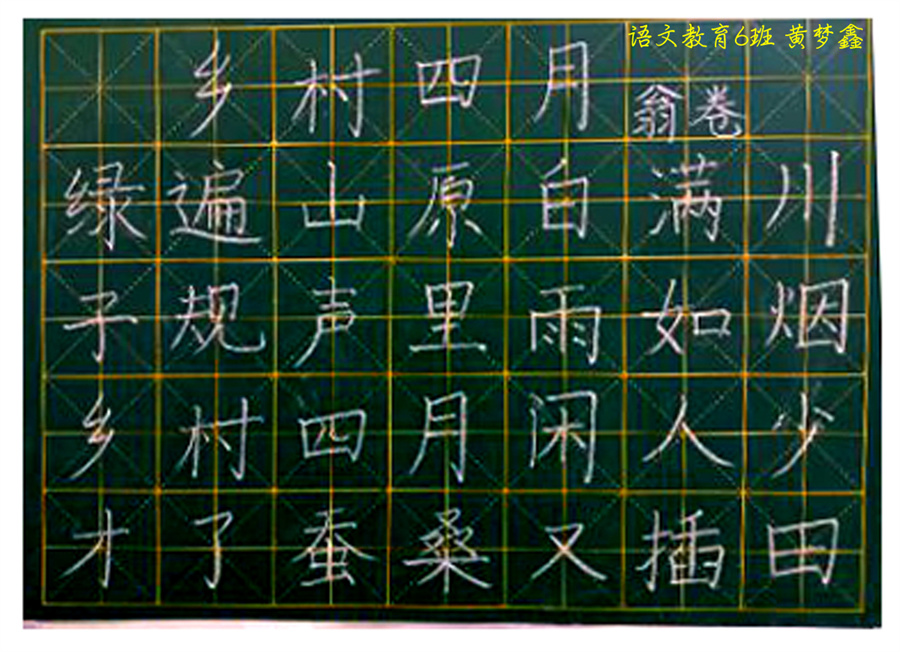 语文教育6班 黄梦鑫
乡村四月
翁卷
绿遍山原白满川
子规声里雨如烟
乡村四月闲人少
才了蚕桑又插田